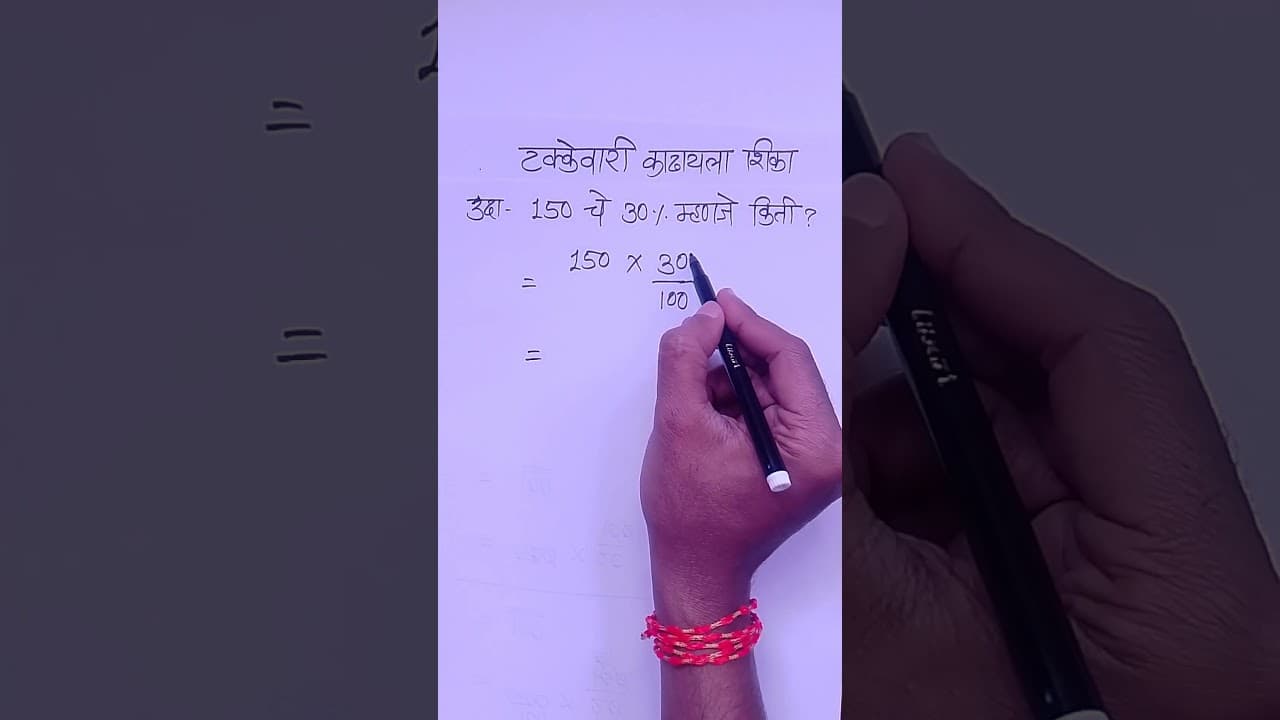 टक्केवारी काढायला शिका
उदा- 150 चे 30% म्हणजे किती?
= 150 x 30
100
=